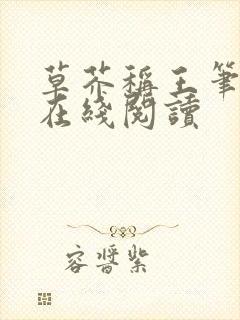 草芥稱王筆
在綫閱讀
容晉紫